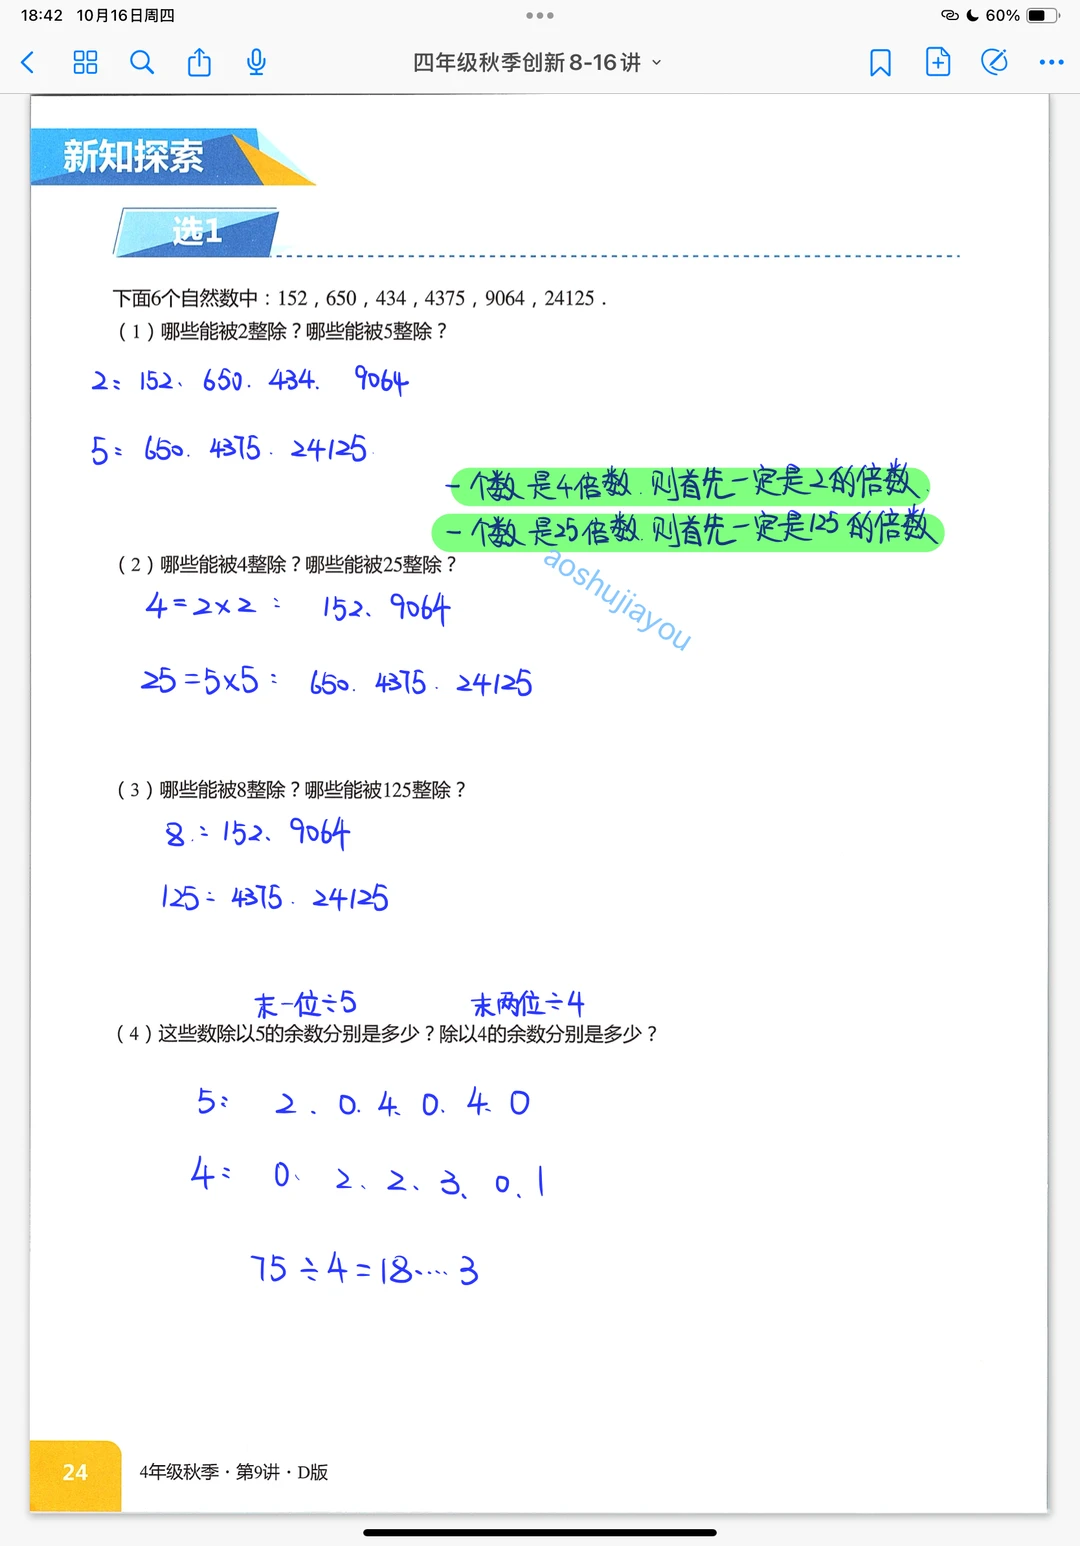 18:42 10月16日周四
60%
四年级秋季创新8-16讲
新知探索
选1
下面6个自然数中：152，650，434，4375，9064，24125．
（1）哪些能被2整除？哪些能被5整除？
2： 152、 650. 434. 9064
5： 650. 4375. 24125.
一个数是4倍数.则首先一定是2的倍数.
一个数是25倍数.则首先一定是125的倍数
（2）哪些能被4整除？哪些能被25整除？
aoshujiayou
4=2×2： 152、9064
25=5×5： 650. 4375. 24125
（3）哪些能被8整除？哪些能被125整除？
8.：152、9064
125： 4375. 24125
末一位÷5 末两位÷4
（4）这些数除以5的余数分别是多少？除以4的余数分别是多少？
5： 2. 0. 4. 0. 4. 0
4： 0、 2、2、3、0、1
75÷4=18……3
24 4年级秋季·第9讲·D版